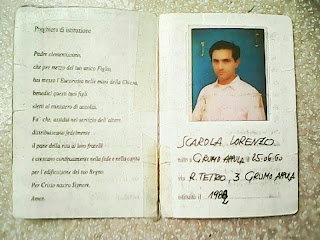 Preghiera di istituzione
Padre clementissimo,
che per mezzo del tuo unico Figlio,
hai messo l'Eucarestia nelle mani della Chiesa,
benedici questi tuoi figli
eletti al ministero di accoliti.
Fa' che, assidui nel servizio dell'altare,
distribuiscano fedelmente
il pane della vita ai loro fratelli
e crescano continuamente nella fede e nella carità
per l'edificazione del tuo Regno.
Per Cristo nostro Signore.
Amen.
SCAROLA LORENZO
nato a GRUMO APPULA il 25-06-60
via R. TETRO, 3 GRUMO APPULA
istituito il